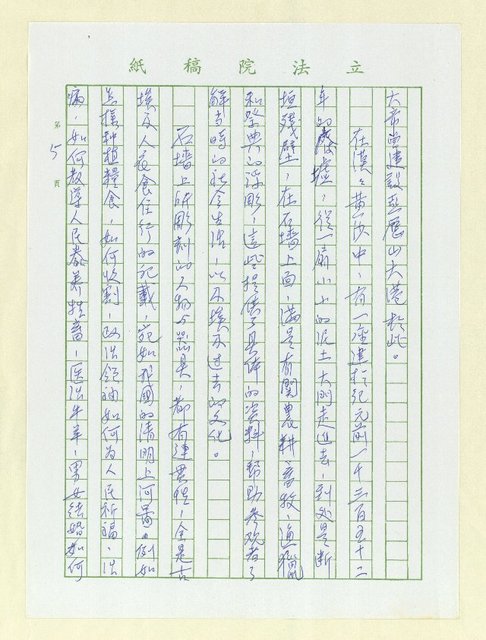 立法院稿紙
大帝曾建設亞歷山大港於此。
在漢漢黃沙中，有一座建於紀元前一千三百五十二
年的廢墟，從一扇小小的泥土大門走進去，到處是斷
垣殘壁，在石墻上面，滿是有關農耕畜牧，漁獵
和祭典的浮彫，這些提供了具体的資料，幫助參观者了
解当時的社会生活，以及埃及过去的文化。
石墻上所彫刻的人物与器具，都有連貫性，全是古
埃及人衣食住行的記載，宛如我國的清明上河圖。例如
怎樣种植糧食，如何收割，政治領袖如何为人民祈福，治
病，如何教導人民豢養牲畜，医治牛羊，男女結婚如何
第5頁